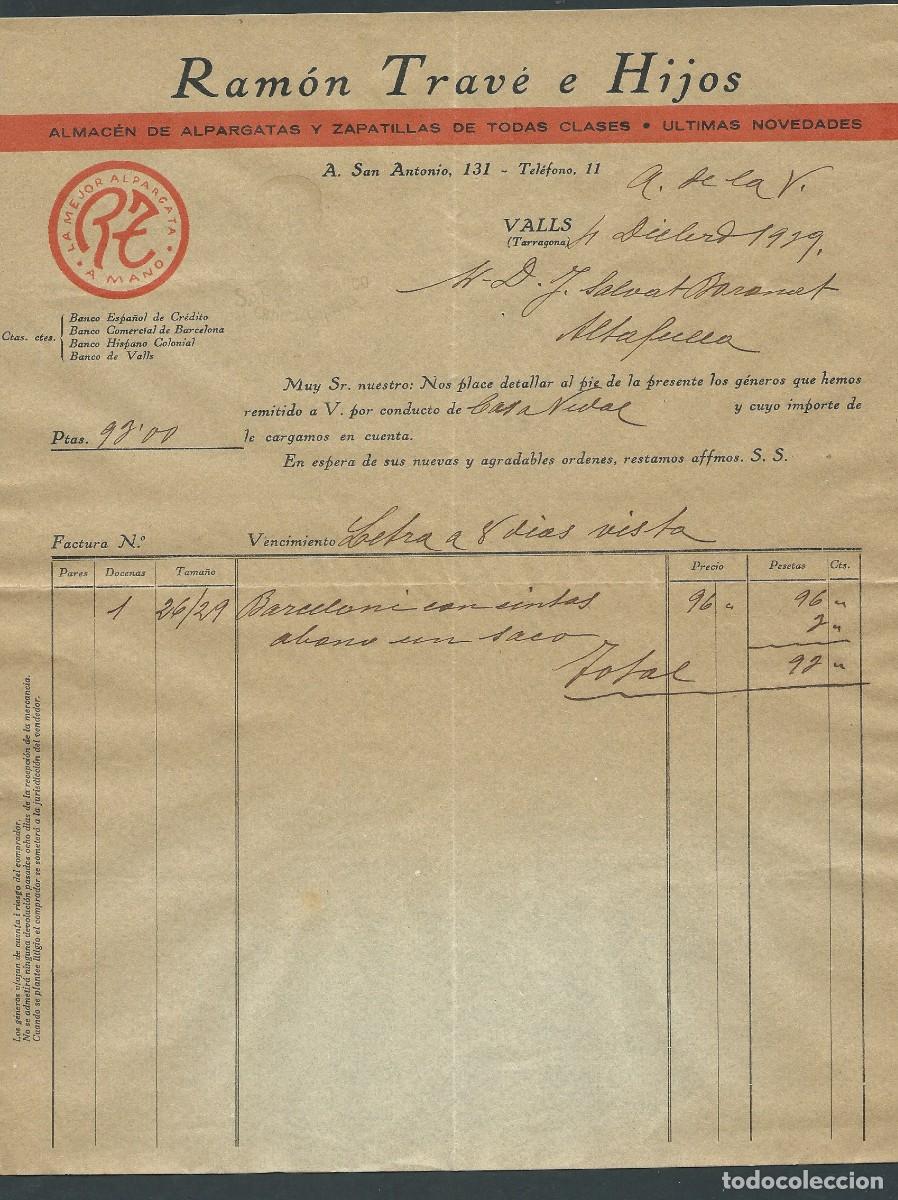 Ramón Travé e Hijos
ALMACÉN DE ALPARGATAS Y ZAPATILLAS DE TODAS CLASES • ULTIMAS NOVEDADES
A. San Antonio, 131 - Teléfono, 11
A. de la V.
LA MEJOR ALPARGATA
RT
• A MANO •
VALLS
(Tarragona) 4 1929.
D. J. Salvat
Altafulla
Ctas. ctes.
Banco Español de Crédito
Banco Comercial de Barcelona
Banco Hispano Colonial
Banco de Valls
Muy Sr. nuestro: Nos place detallar al pie de la presente los géneros que hemos
remitido a V. por conducto de Casa Vidal y cuyo importe de
Ptas. 93'00 le cargamos en cuenta.
En espera de sus nuevas y agradables ordenes, restamos affmos. S. S.
Factura N.º Vencimiento Letra a 8 dias vista
Pares Docenas Tamaño Precio Pesetas Cts.
1 26/29 con cintas 96 " 96 "
abono un saco "
Total "
Los géneros viajan de cuenta i riesgo del comprador.
No se admitirá ninguna devolución pasados ocho días de la recepción de la mercancía.
Cuando se plantee litigio el comprador se someterá a la jurisdicción del vendedor.
todocoleccion